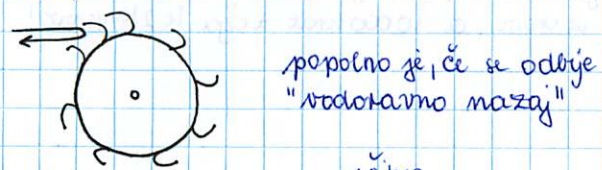 popolno je, če se odbije
"vodoravno nazaj"